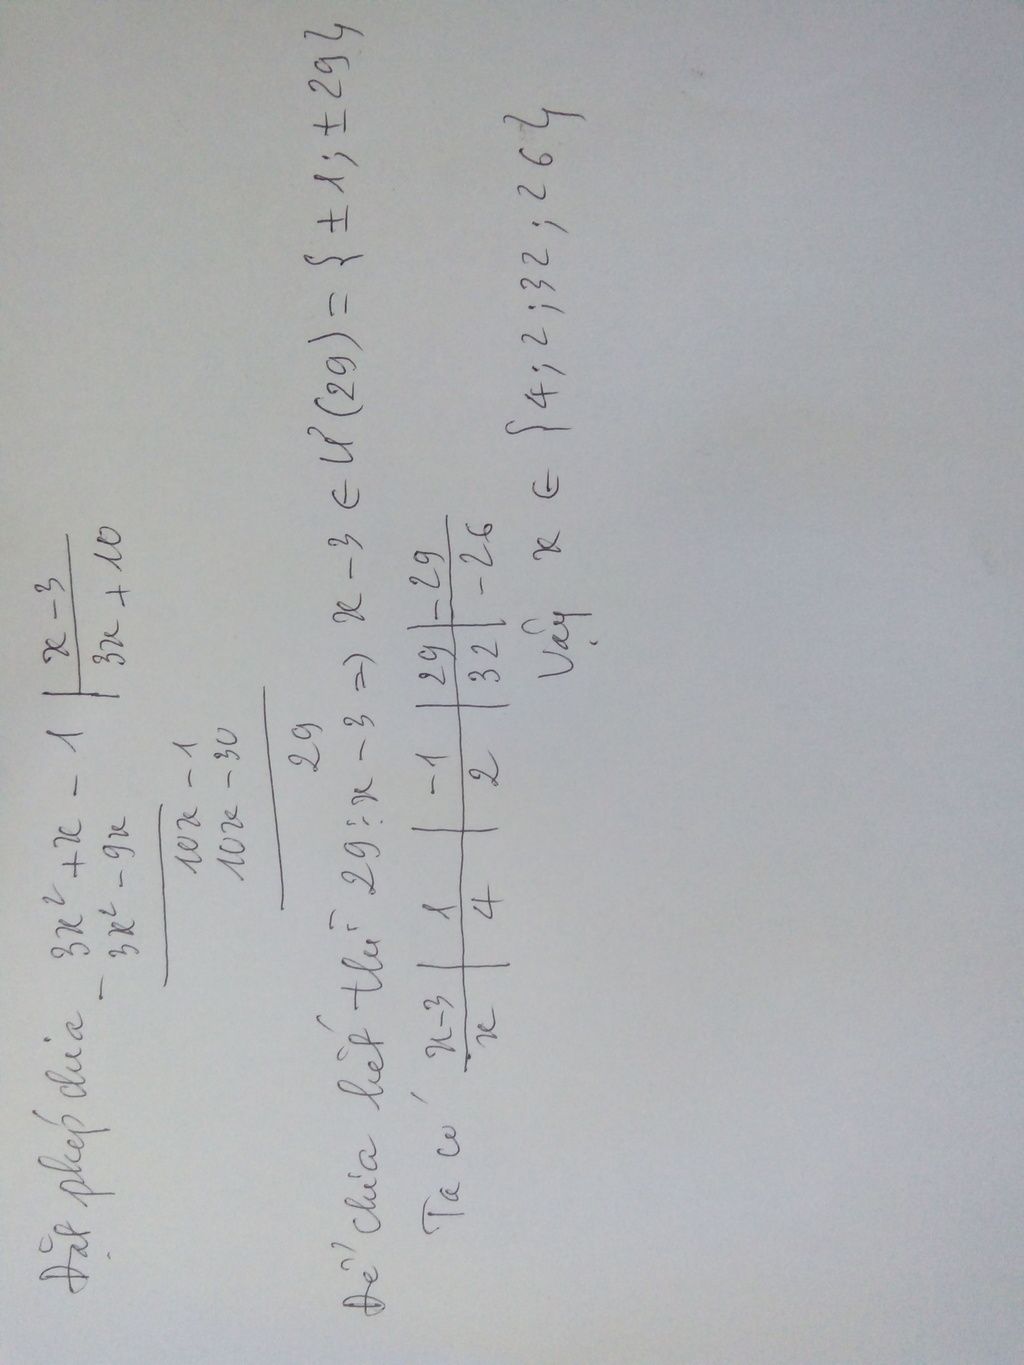 Đặt phép chia
3x² + x - 1 | x - 3
- 3x² - 9x | 3x + 10
10x - 1
10x - 30
29
Để chia hết thì 29 ⋮ x - 3 => x - 3 ∈ Ư(29) = { ± 1 ; ± 29 }
Ta có x - 3 | 1 | -1 | 29 | -29
x | 4 | 2 | 32 | -26
Vậy x ∈ { 4 ; 2 ; 32 ; 26 }